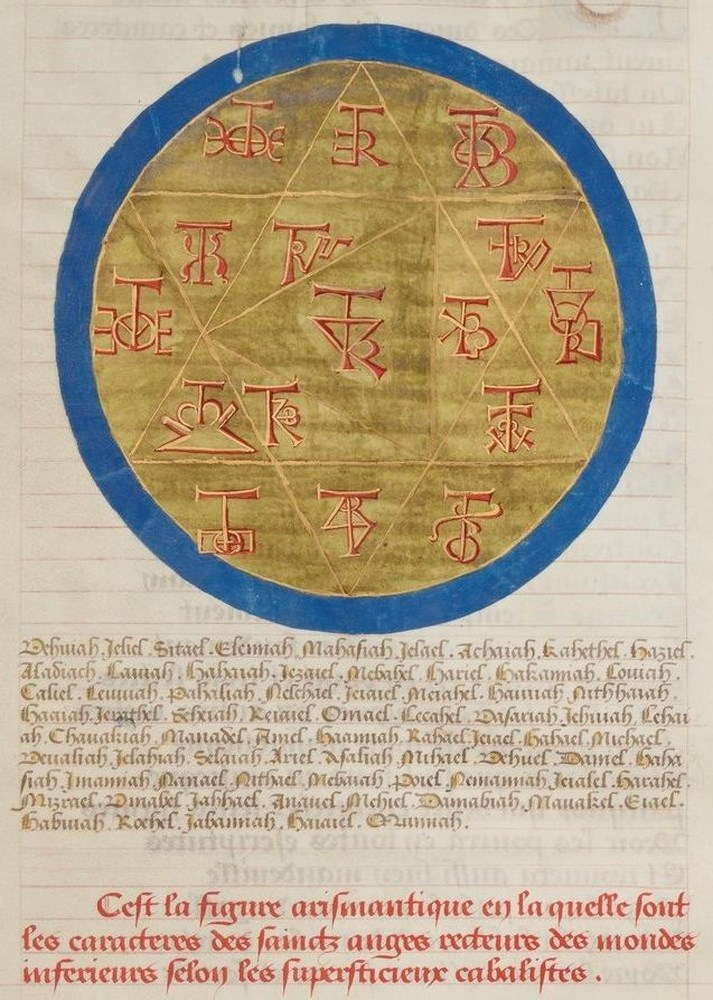 Vehuiah. Jeliel. Sitael. Elemiah. Mahasiah. Jelael. Achaiah. Kahethel. Haziel.
Aladiach. Lauiah. Hahaiah. Jezaiel. Mebahel. Hariel. Hakamiah. Louiah.
Caliel. Leuuiah. Pahaliah. Nelchael. Jeiaiel. Melahel. Hauiuah. Nithhaiah.
Haaiah. Jerathel. Seheiah. Reiaiel. Omael. Lecahel. Vasariah. Jehuiah. Lehai
ah. Chauakiah. Manadel. Aniel. Haamiah. Rahael. Jeiael. Hahael. Michael.
Veualiah. Jelahiah. Selaiah. Ariel. Asaliah. Mihael. Vehuel. Daniel. Haha
siah. Imamiah. Nanael. Nithael. Mebaiah. Poiel. Nemamiah. Jeialel. Harahel.
Mizrael. Vmabel. Jahhael. Anauel. Mehiel. Damabiah. Mauakel. Eiael.
Habuiah. Rochel. Jabamiah. Haiaiel. Mumiah.
Cest la figure arismantique en la quelle sont
les caracteres des sainctz anges recteurs des mondes
inferieurs selon les supersticieux cabalistes.